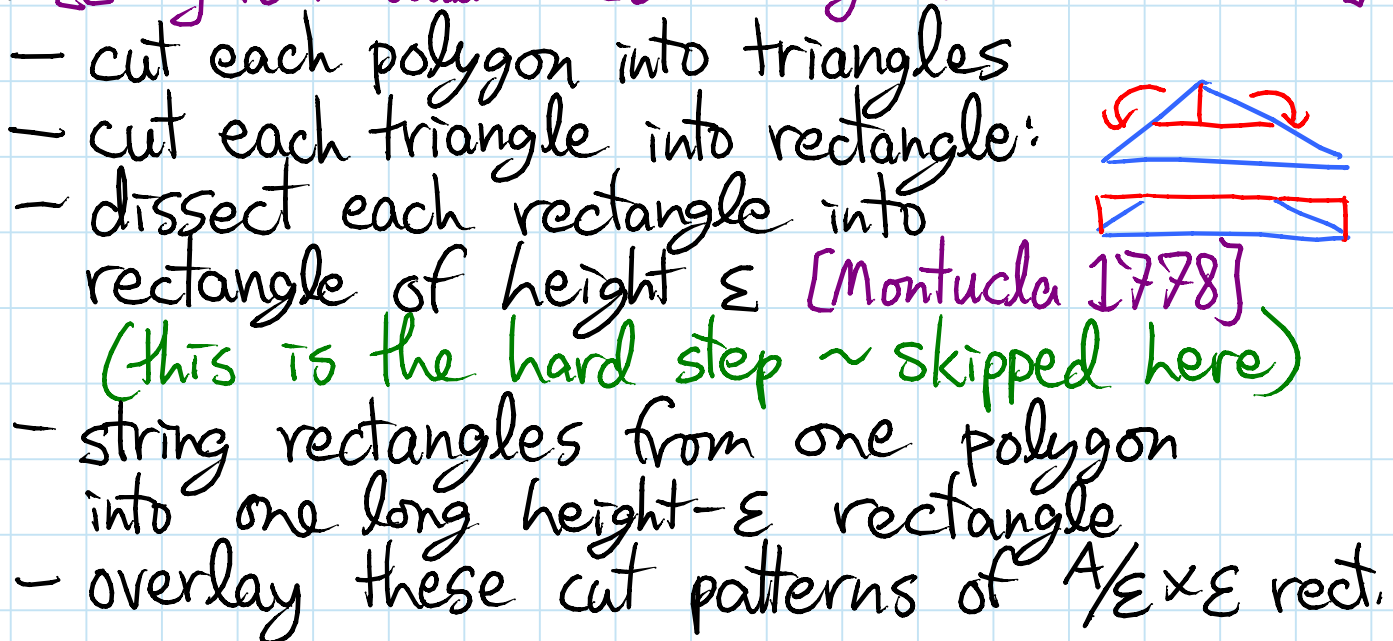 - cut each polygon into triangles
- cut each triangle into rectangle:
- dissect each rectangle into
rectangle of height ε [Montucla 1778]
(this is the hard step ~ skipped here)
- string rectangles from one polygon
into one long height-ε rectangle
- overlay these cut patterns of A/ε × ε rect.